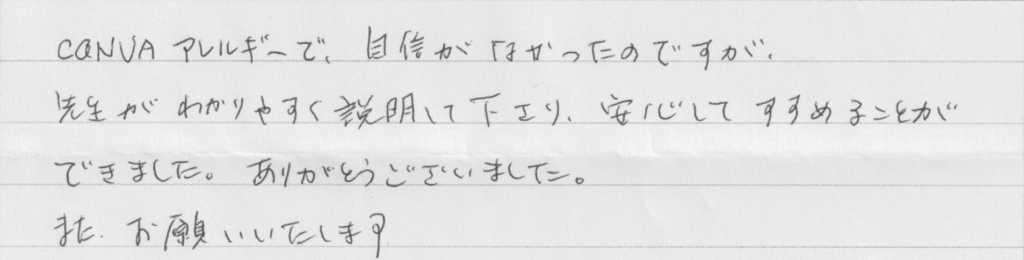 CANVA アレルギーで、自信がなかったのですが、
先生がわかりやすく説明して下さり、安心してすすめることが
できました。ありがとうございました。
また、お願いいたします